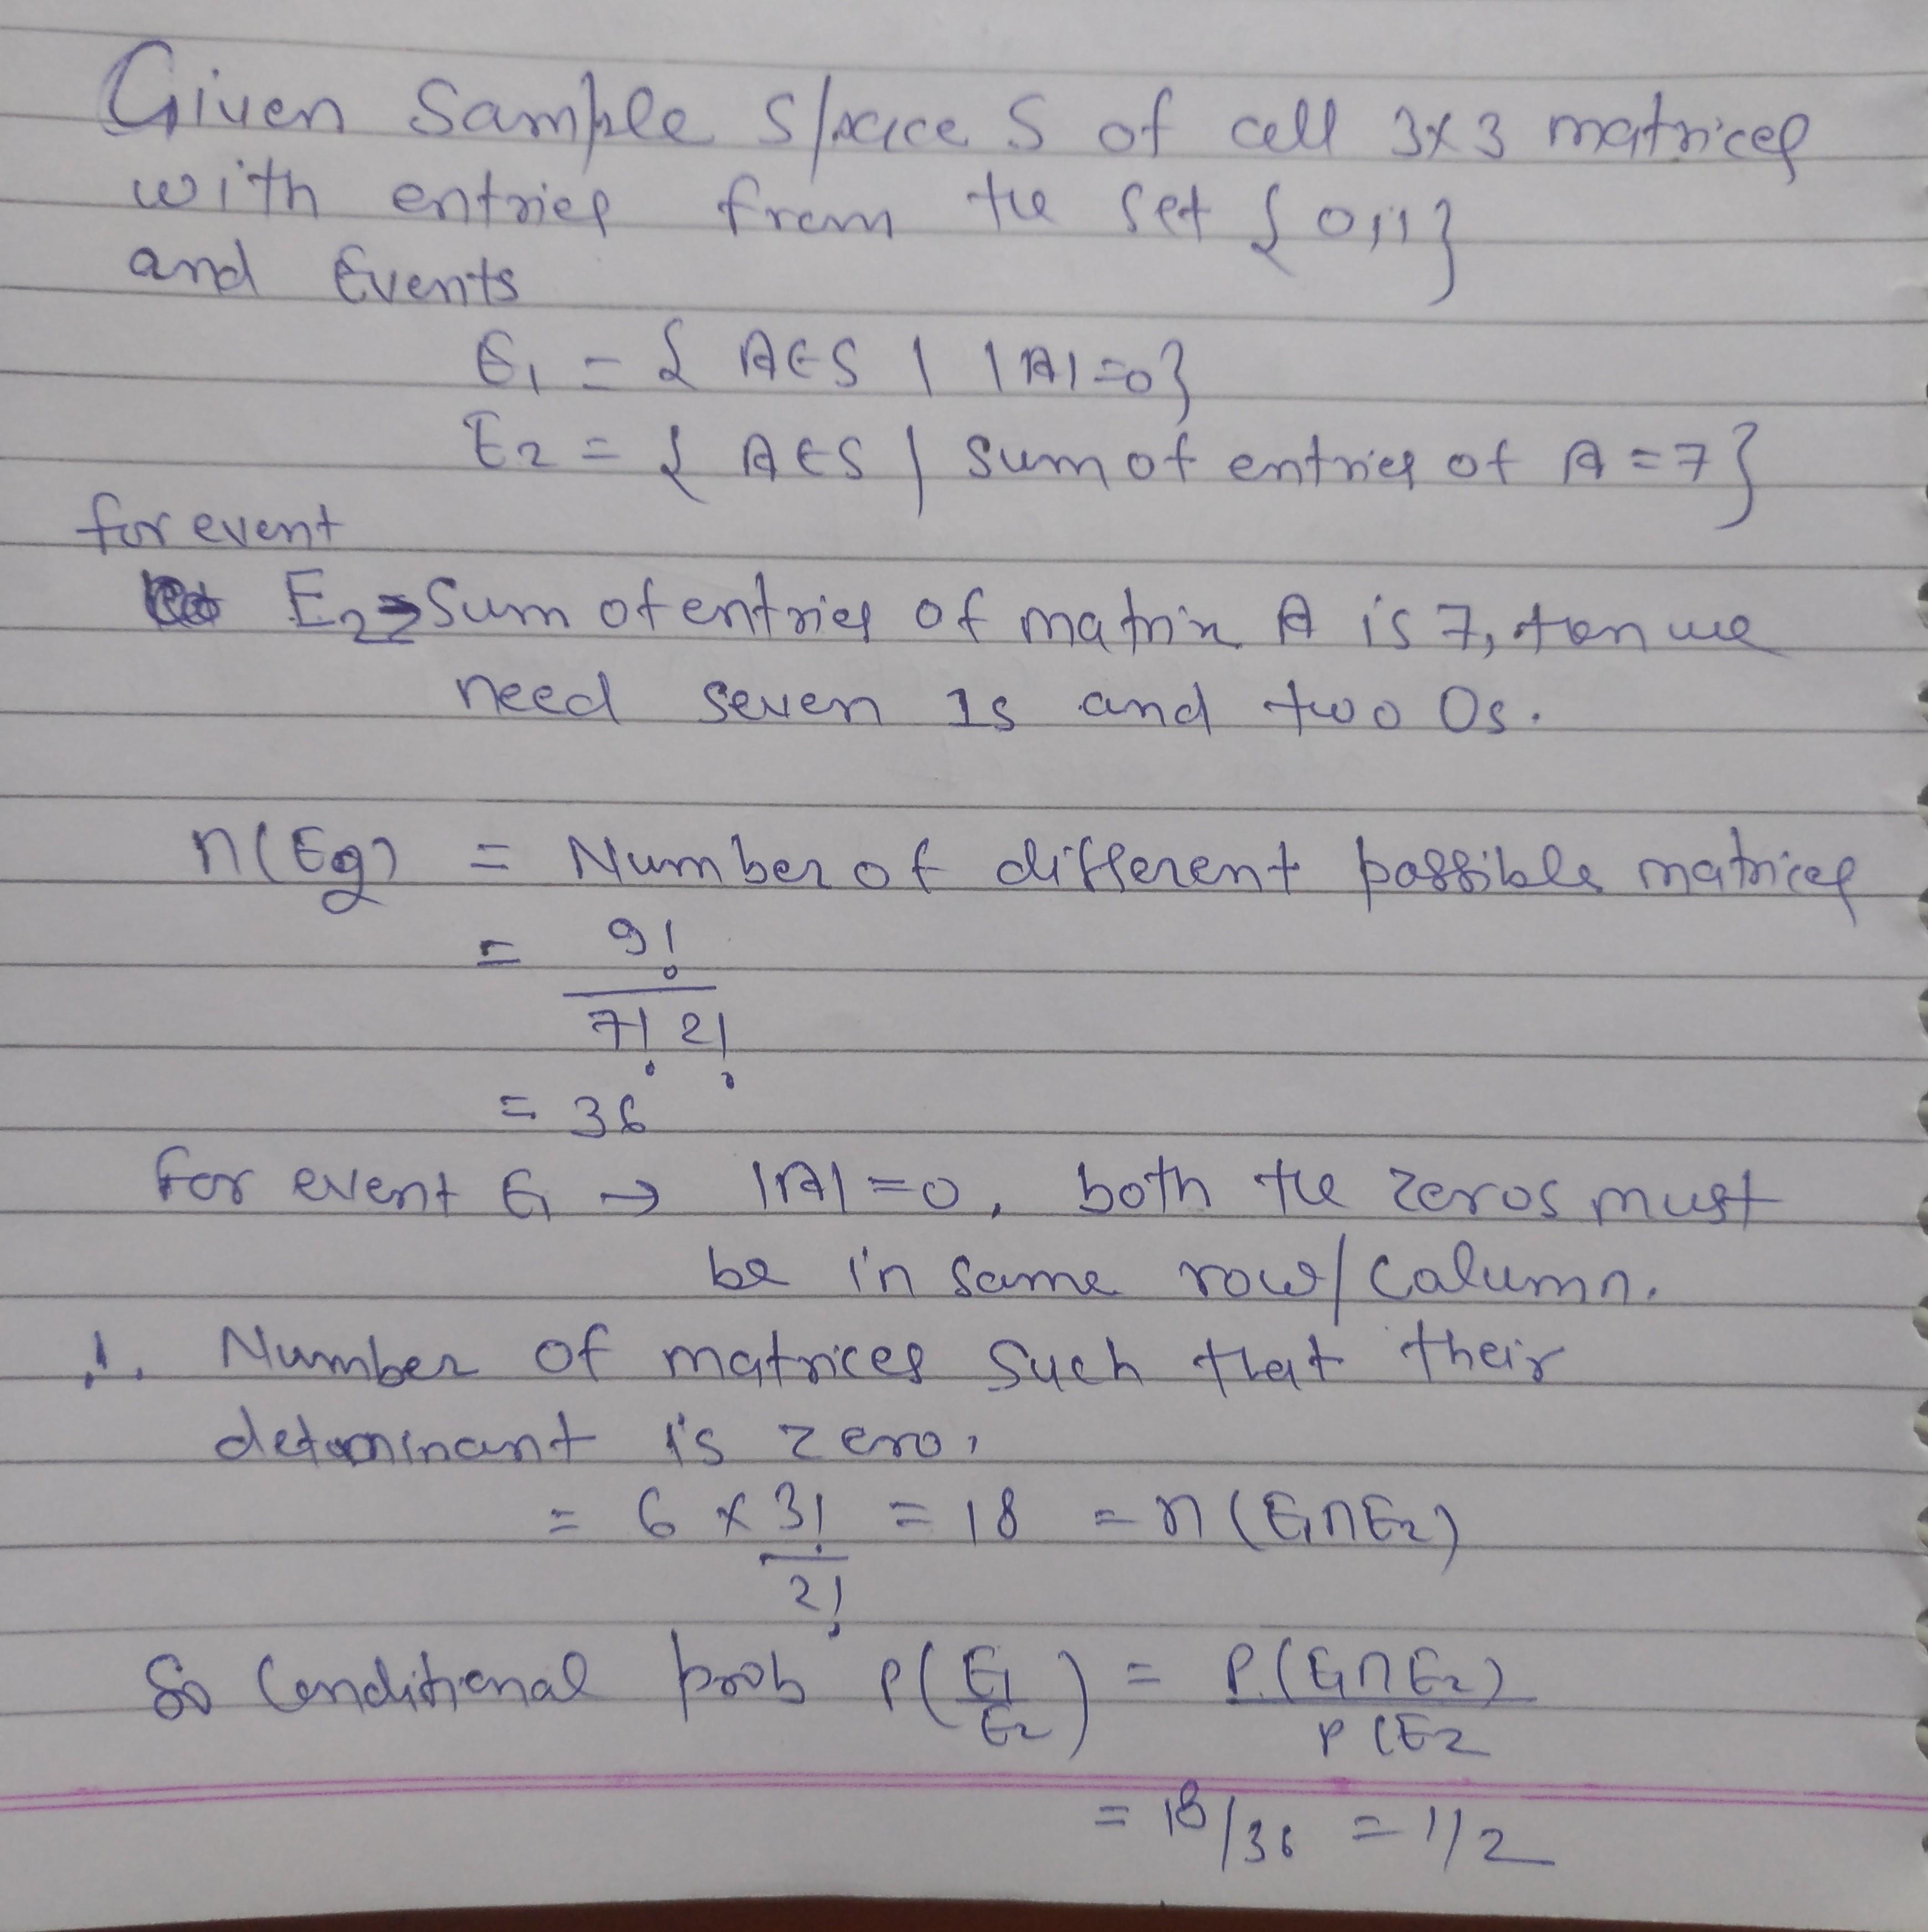 Given Sample Space S of all 3x3 matrices
with entries from the set {0,1}
and Events
E1 = { A∈S | |A|=0}
E2 = { A∈S | Sum of entries of A = 7}
for event
E2 → Sum of entries of matrix A is 7, then we
need seven 1s and two 0s.
n(E2) = Number of different possible matrices
= 9!
7! 2!
= 36
for event E1 → |A|=0, both the zeros must
be in same row/column.
∴ Number of matrices such that their
determinant is zero,
= 6 x 3! = 18 = n(E1∩E2)
2!
So Conditional prob P(E1/E2) = P(E1∩E2)
P(E2
= 18/36 = 1/2